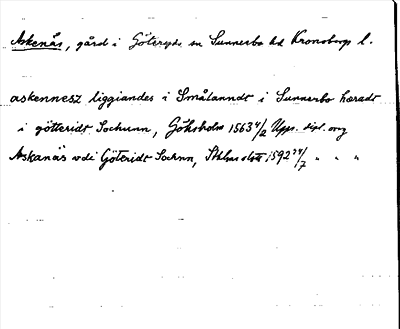 Askenäs, gård i Göteryds sn Sunnerbo hd Kronobergs l.
askennesz liggiandes i Smålanndt i Sunnerbo haradt
i götteridt Sochunn, Göksholm 1563 4/2 Upps. dipl. orig
Askanäs vdi Göteridt Sochnn, Sthlms slott 1592 24/7 " " "